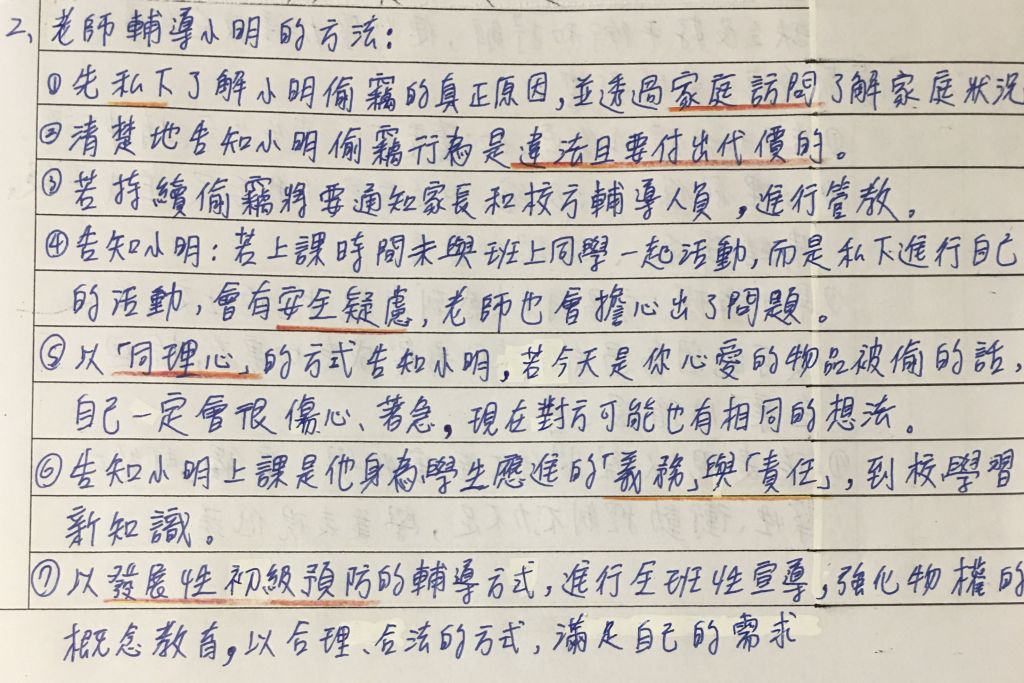 2、老師輔導小明的方法：
①先私下了解小明偷竊的真正原因，並透過家庭訪問了解家庭狀況
②清楚地告知小明偷竊行為是違法且要付出代價的。
③若持續偷竊將要通知家長和校方輔導人員，進行管教。
④告知小明：若上課時間未與班上同學一起活動，而是私下進行自己
的活動，會有安全疑慮，老師也會擔心出了問題。
⑤以「同理心」的方式告知小明，若今天是你心愛的物品被偷的話，
自己一定會很傷心、著急，現在對方可能也有相同的想法。
⑥告知小明上課是他身為學生應進的「義務」與「責任」，到校學習
新知識。
⑦以發展性初級預防的輔導方式，進行全班性宣導，強化物權的
概念教育，以合理、合法的方式，滿足自己的需求